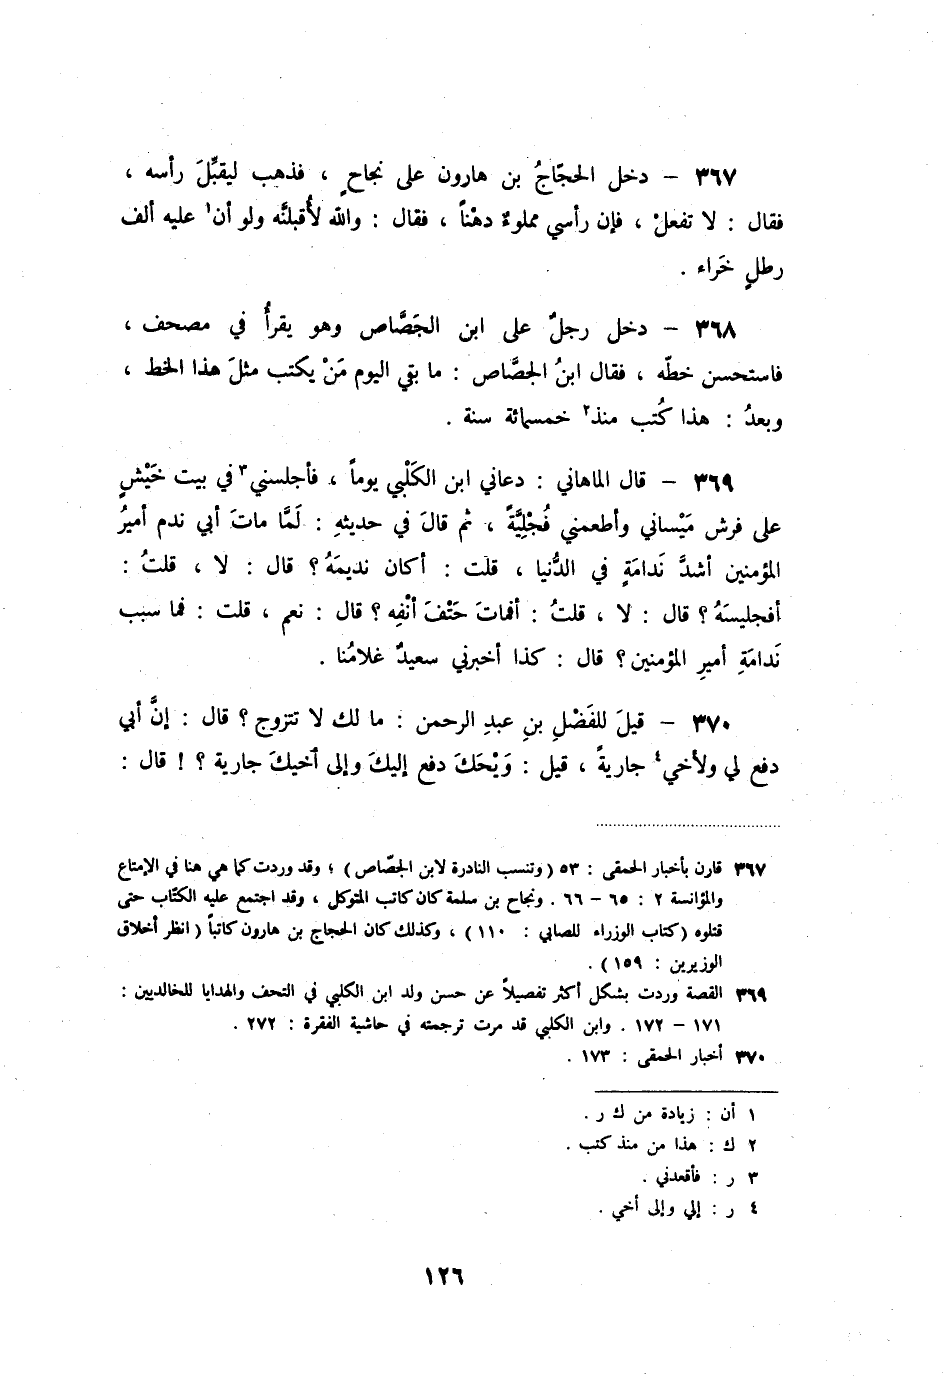 ٣٦٧ – دخل الحجّاجُ بن هارون على نجاحٍ ، فذهب ليقبِّلَ رأسه ،
فقال : لا تفعلْ ، فإن رأسي مملوءٌ دهْناً ، فقال : والله لأُقبلنَّه ولو أن١ عليه ألف
رطلٍ خَراء .
٣٦٨ – دخل رجلٌ على ابن الجَصَّاص وهو يقرأُ في مصحف ،
فاستحسن خطّه ، فقال ابنُ الجصَّاص : ما بقي اليوم مَنْ يكتب مثلَ هذا الخط ،
وبعدُ : هذا كُتب منذ٢ خمسمائة سنة .
٣٦٩ – قال الماهاني : دعاني ابن الكَلْبي يوماً ، فأجلسني٣ في بيت خَيْشٍ
على فرش مَيْساني وأطعمني فُجْلِيَّةً ، ثم قالَ في حديثهِ : لَمَّا ماتَ أبي ندم أميرُ
المؤمنين أشدَّ نَدامَةٍ في الدُّنيا ، قلت : أكان نديمَهُ ؟ قال : لا ، قلتُ :
أفجليسَهُ ؟ قال : لا ، قلتُ : أفماتَ حَتْفَ أنْفِه ؟ قال : نعم ، قلت : فما سبب
نَدامَةِ أميرِ المؤمنين ؟ قال : كذا أخبرني سعيدٌ غلامُنا .
٣٧٠ – قيلَ للفَضْلِ بنِ عبدِ الرحمن : ما لك لا تتزوج ؟ قال : إنَّ أبي
دفع لي ولأخي٤ جاريةً ، قيل : وَيْحَكَ دفع إليكَ وإلى أخيكَ جارية ؟ ! قال :
٣٦٧ قارن بأخبار الحمقى : ٥٣ (وتنسب النادرة لابن الجصّاص) ؛ وقد وردت كما هي هنا في الإمتاع
والمؤانسة ٢ : ٦٥ – ٦٦ . ونجاح بن سلمة كان كاتب المتوكل ، وقد اجتمع عليه الكتّاب حتى
قتلوه (كتاب الوزراء للصابي : ١١٠) ، وكذلك كان الحجاج بن هارون كاتباً (انظر أخلاق
الوزيرين : ١٥٩) .
٣٦٩ القصة وردت بشكل أكثر تفصيلاً عن حسن ولد ابن الكلبي في التحف والهدايا للخالديين :
١٧١ – ١٧٢ . وابن الكلبي قد مرت ترجمته في حاشية الفقرة : ٢٧٢ .
٣٧٠ أخبار الحمقى : ١٧٣ .
١ أن : زيادة من ك ر .
٢ ك : هذا من منذ كتب .
٣ ر : فأقعدني .
٤ ر : إلي وإلى أخي .
١٢٦